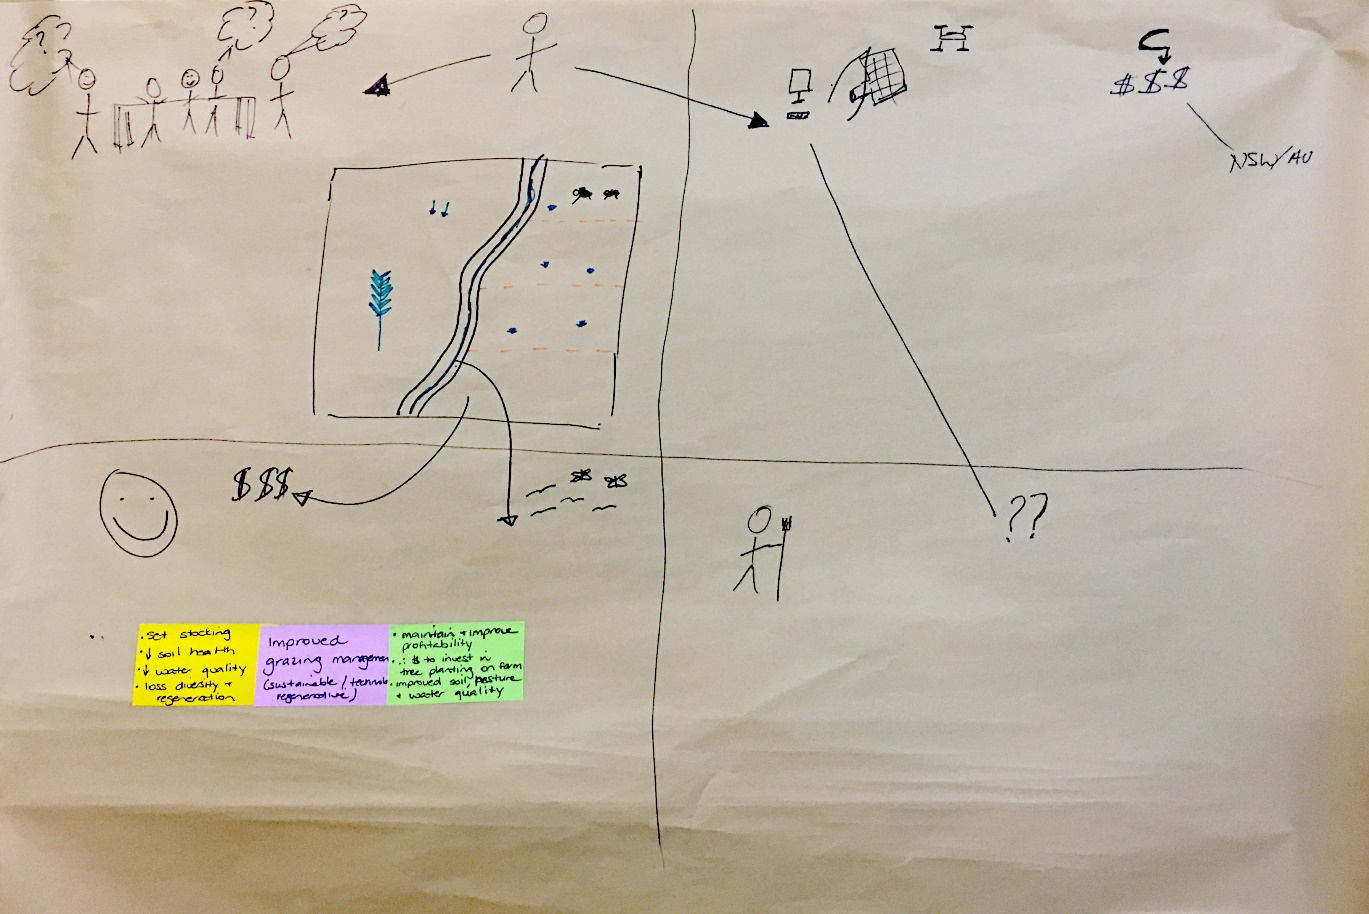 ??
??
$$$
NSW/AU
$$$
??
• Set stocking
• ↓ soil health
• ↓ water quality
• loss diversity +
regeneration
Improved
grazing managemen
(sustainable / techno
regenerative)
• maintain + improve
profitability
∴ $ to invest in
tree planting on farm
• improved soil, pasture
+ water quality